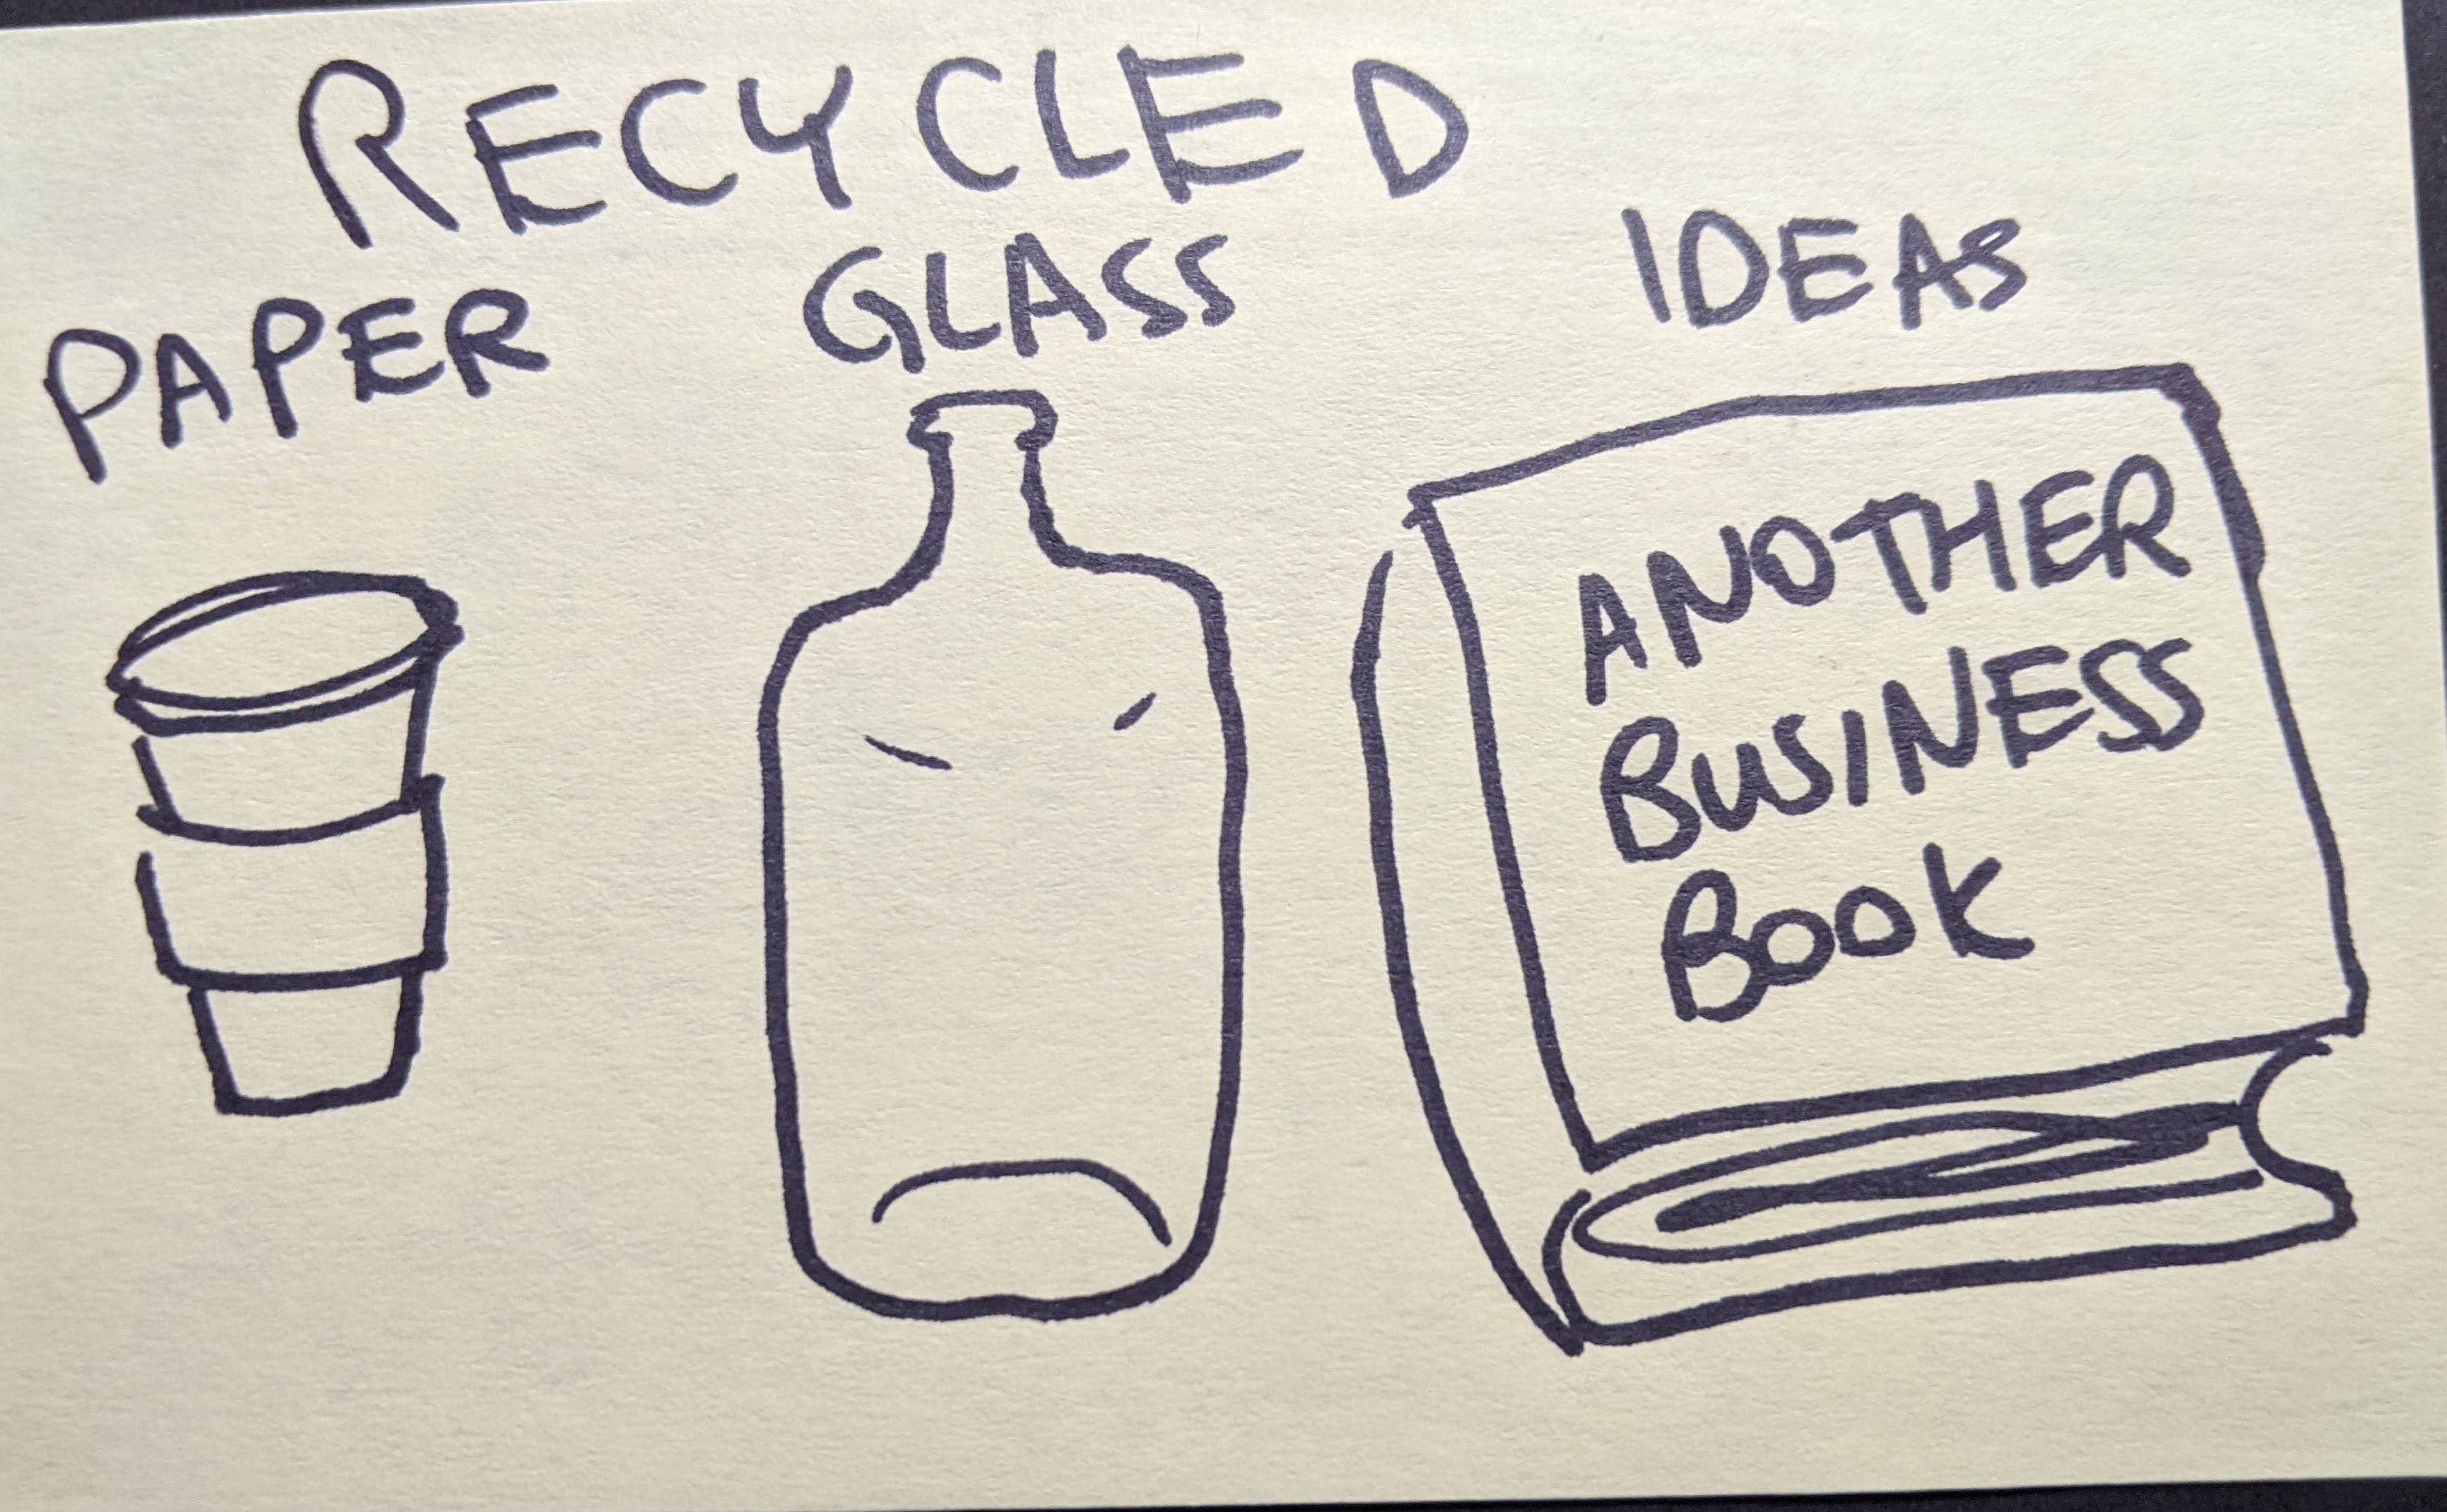 RECYCLED
PAPER
GLASS
IDEAS
ANOTHER
BUSINESS
BOOK